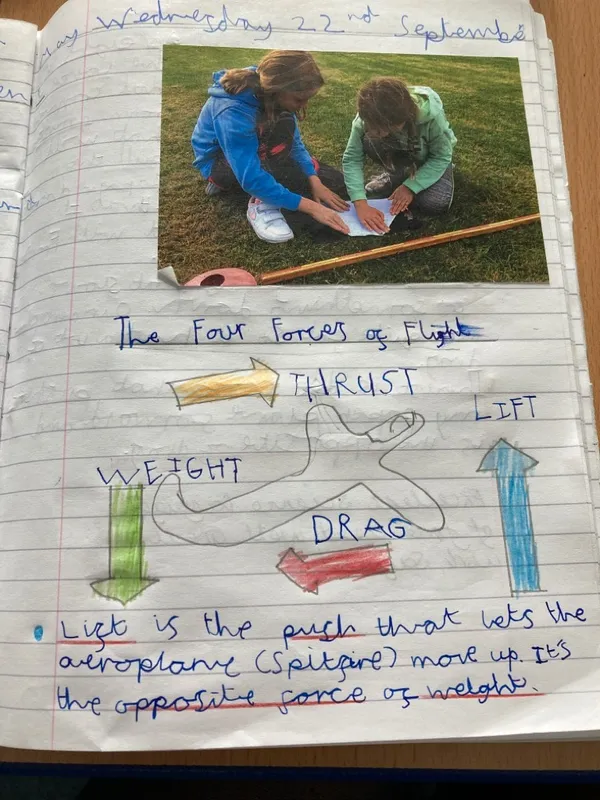 Wednesday 22nd Septembe
The Four Forces of Flight
THRUST
LIFT
WEIGHT
DRAG
Lift is the push that lets the
aeroplane (Spitfire) move up. It's
the opposite force of weight.